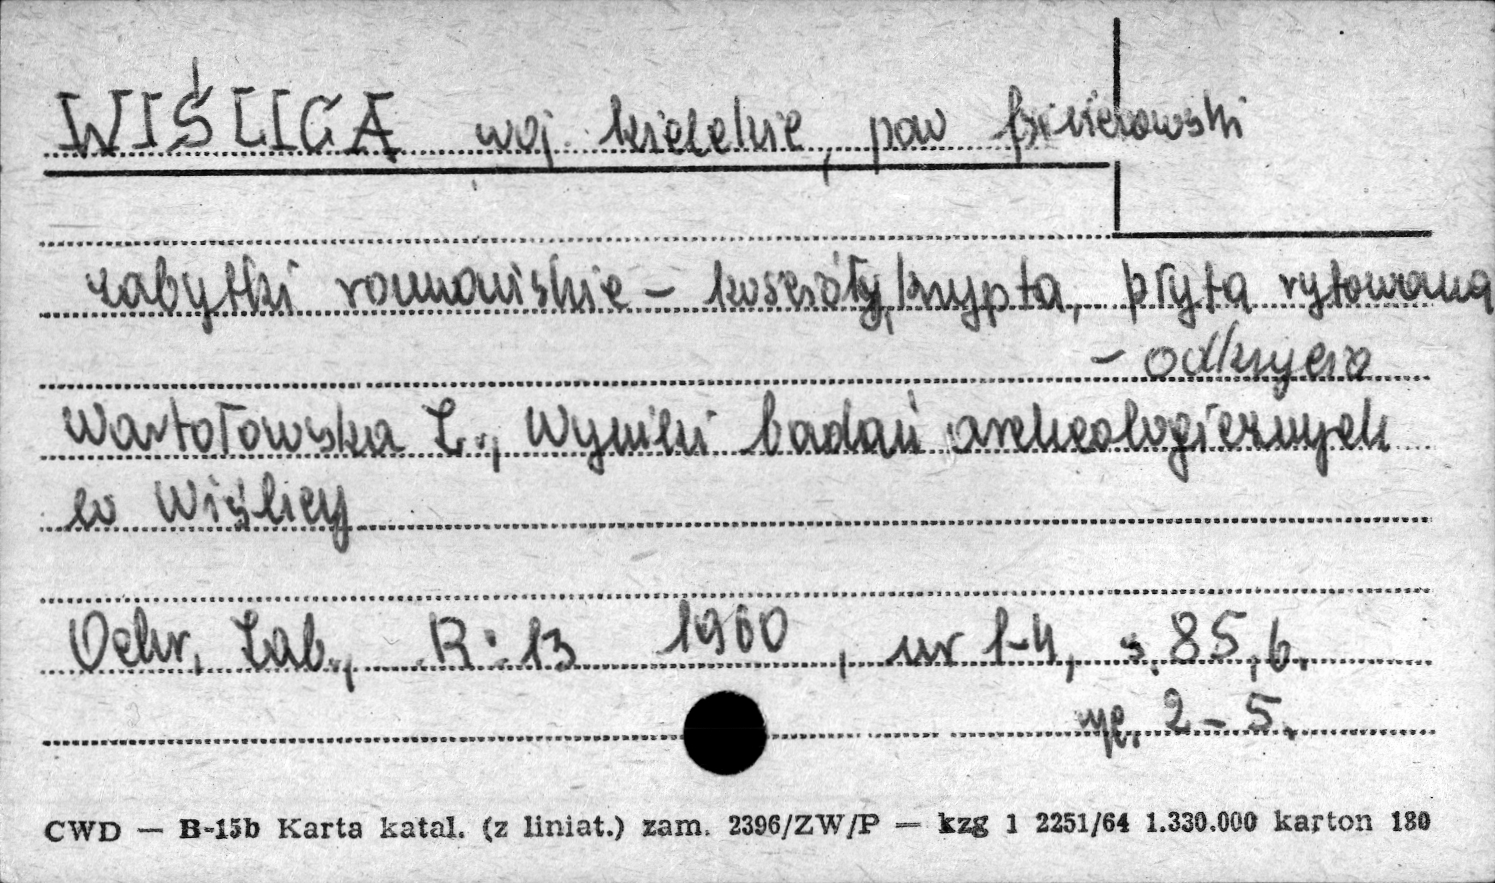 WIŚLICA woj. kieleckie, pow
zabytki romańskie – kościoły, krypta, płyta rytowana
– odkrycia
Wartołowska Z., Wyniki badań archeologicznych
w Wiślicy
Ochr. Zab., R: 13 1960, nr 1-4, s. 85,6.
ryc. 2-5.
CWD — B-15b Karta katal. (z liniat.) zam. 2396/ZW/P — kzg 1 2251/64 1.330.000 karton 180